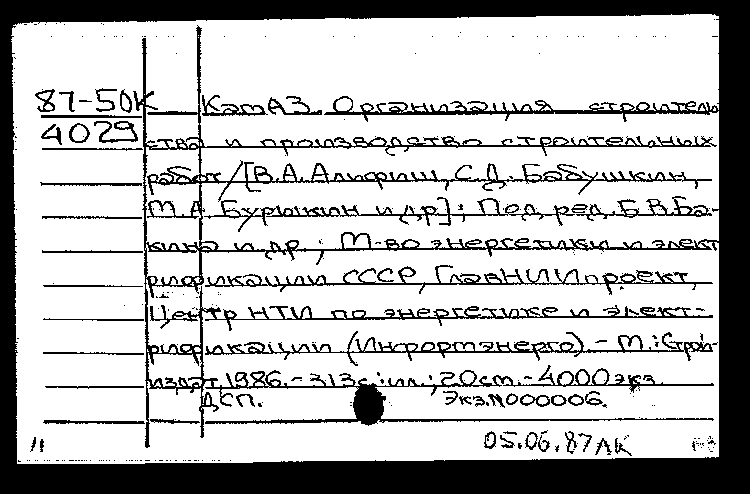 87-50К КатАЗ. Организация строитель
4029 ства и производство строительных
работ /[В.А. Альфиш, С.Д. Бабушкин,
М.А. Бурыкин и др]; Под ред. Б.В.Ба-
кина и др.; М-во энергетики и элект
рификации СССР, ГлавНИИпроект,
Центр НТИ по энергетике и элект-
рификации (Информэнерго).- М.: Строй-
издат, 1986.-313с.:ил.; 20см.-4000экз.
ДСП. Экз.N000006.
11 05.06.87ЛК